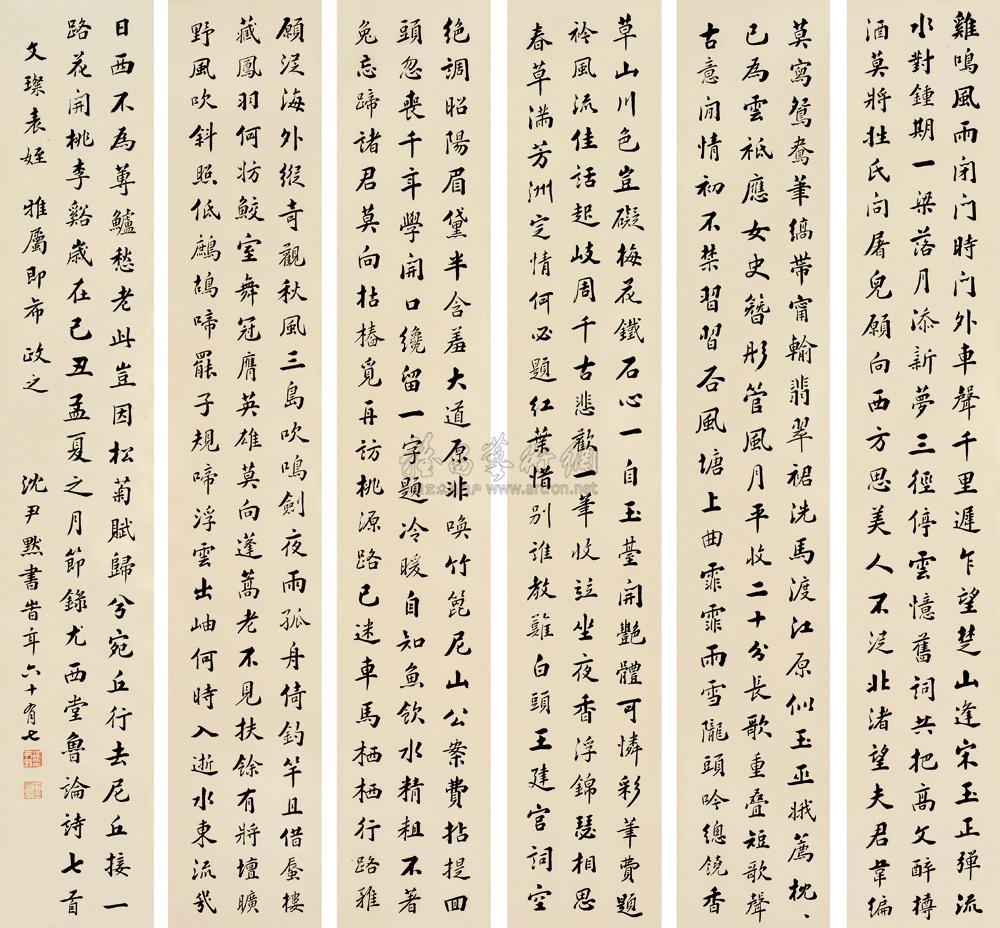 雞鳴風雨閉门時门外車聲千里遲乍望楚山逢宋玉正彈流
水對鍾期一梁落月添新夢三徑停雲憶舊詞共把高文醉樽
酒莫將壯氏向屠兒願向西方思美人不從北渚望夫君韋編
莫寫鴛鴦筆縞帶甯輸翡翠裙洗馬渡江原似玉巫娥薦枕、
已為雲衹應女史簪彤管風月平收二十分長歌重疊短歌聲
古意闲情初不禁習習谷風塘上曲霏霏雨雪隴頭吟總饒香
草山川色豈礙梅花鐵石心一自玉臺開艷體可憐彩筆費題
衿風流佳話起岐周千古悲歡一筆收竝坐夜香浮錦瑟相思
春草滿芳洲定情何必題紅葉惜別誰教雞白頭王建宫詞空
绝調昭陽眉黛半含羞大道原非喚竹篦尼山公案費拈提回
頭忽喪千年學開口纔留一字題冷暖自知魚飲水精粗不著
兔忘蹄諸君莫向枯樁覓再訪桃源路已迷車馬栖栖行路難
願從海外縱奇觀秋風三島吹鳴劍夜雨孤舟倚釣竿且借蜃樓
藏鳳羽何妨鮫室舞冠鷹英雄莫向蓬蒿老不見扶餘有將壇曠
野風吹斜照低鷓鴣啼罷子規啼浮雲出岫何時入逝水東流幾
日西不為蓴鱸愁老此豈因松菊賦歸兮宛丘行去尼丘接一
路花開桃李谿歲在己丑孟夏之月節錄尤西堂魯論詩七首
文璨表姪 雅屬即希 政之 沈尹默書昔年六十有七
雅昌藝術網
www.artron.net